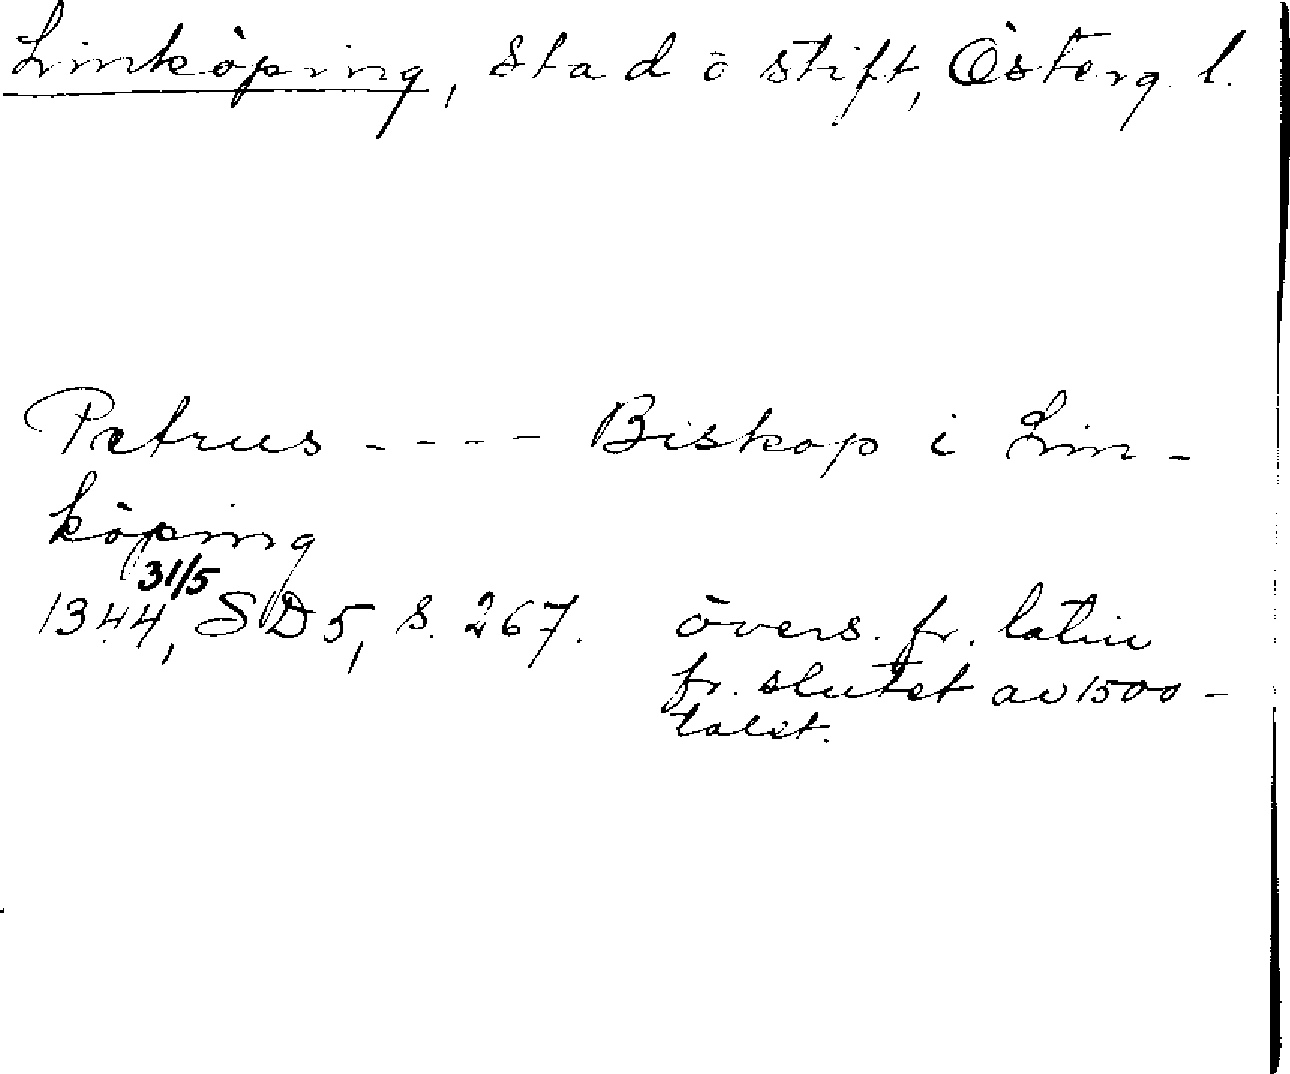 Linköping, stad o stift, Österg. l.
Petrus - - - - Biskop i Lin-
köping
1344, 31/5 SD 5, s. 267. övers. fr. latin
fr. slutet av 1500-
talet.